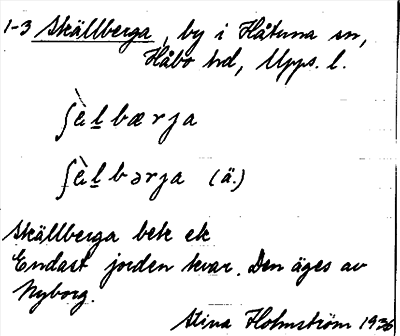 1-3 Skällberga, by i Håtuna sn,
Håbo hd, Upps. l.
ʃὲlbærja
ʃὲlbərja (ä.)
Skällberga bek ek
Endast jorden kvar. Den äges av
Nyborg.
Stina Holmström 1936